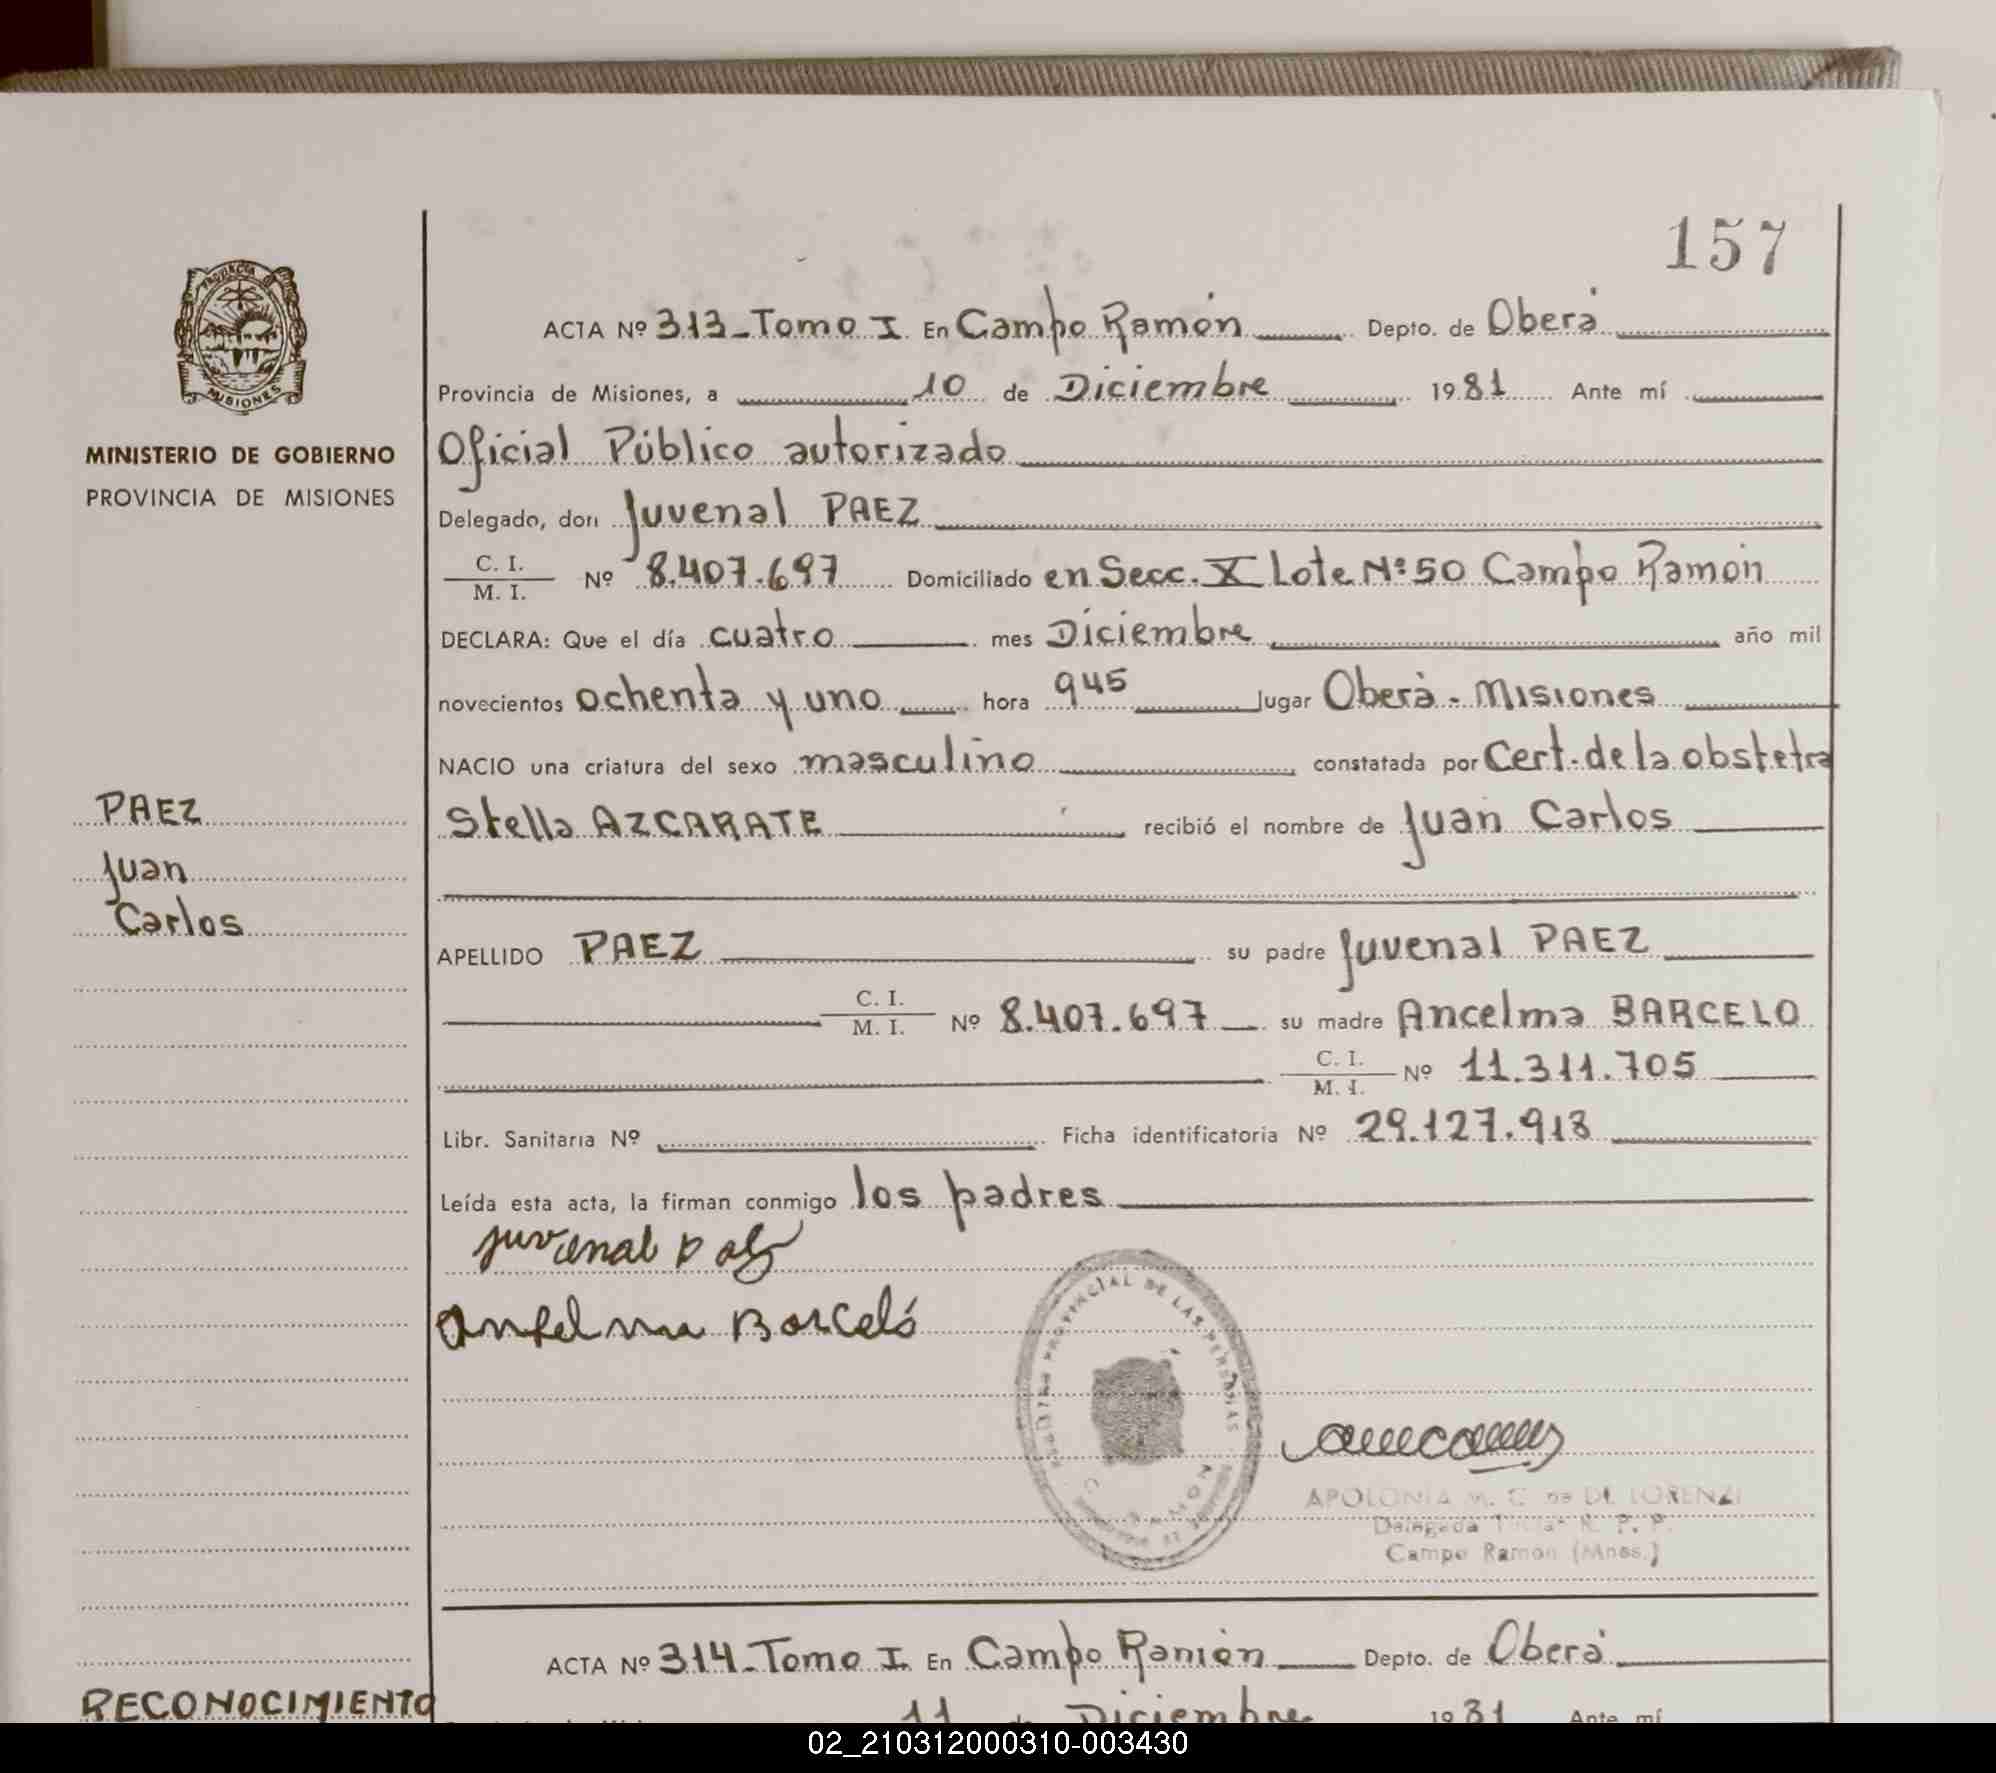 157
PROVINCIA
MISIONES
MINISTERIO DE GOBIERNO
PROVINCIA DE MISIONES
ACTA Nº 313-Tomo I. En Campo Ramón Depto. de Oberá
Provincia de Misiones, a 10 de Diciembre 1981 Ante mí
Oficial Público autorizado
Delegado, don Juvenal PAEZ
C. I.
M. I. Nº 8.407.697 Domiciliado en Secc. X Lote Nº 50 Campo Ramón
DECLARA: Que el día cuatro mes Diciembre año mil
novecientos ochenta y uno hora 945 lugar Oberá - Misiones
NACIO una criatura del sexo masculino constatada por Cert. de la obstetra
Stella AZCARATE recibió el nombre de Juan Carlos
PAEZ
Juan
Carlos
APELLIDO PAEZ su padre Juvenal PAEZ
C. I.
M. I. Nº 8.407.697 su madre Ancelma BARCELO
C. I.
M. I. Nº 11.311.705
Libr. Sanitaria Nº Ficha identificatoria Nº 29.127.913
Leída esta acta, la firman conmigo los padres
Juvenal Paez
Anselma Barceló
PROVINCIAL DE LAS PERSONAS
APOLONIA M. C. de DE LORENZI
Delegada Titular R. P. P.
Campo Ramon (Mnes.)
ACTA Nº 314-Tomo I. En Campo Ramón Depto. de Oberá
RECONOCIMIENTO
11 de Diciembre 1981 Ante mí
02_210312000310-003430